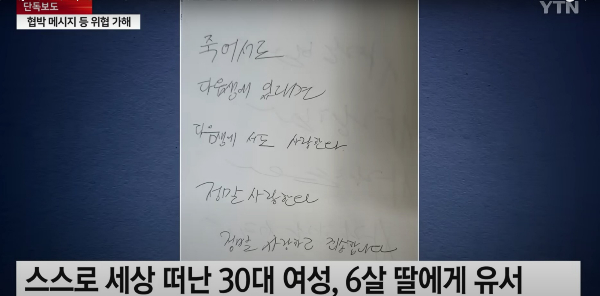 단독보도
협박 메시지 등 위협 가해
YTN
죽어서도
다음생에 있다면
다음생에서도 사랑한다
정말 사랑한다
정말 사랑하고
스스로 세상 떠난 30대 여성, 6살 딸에게 유서